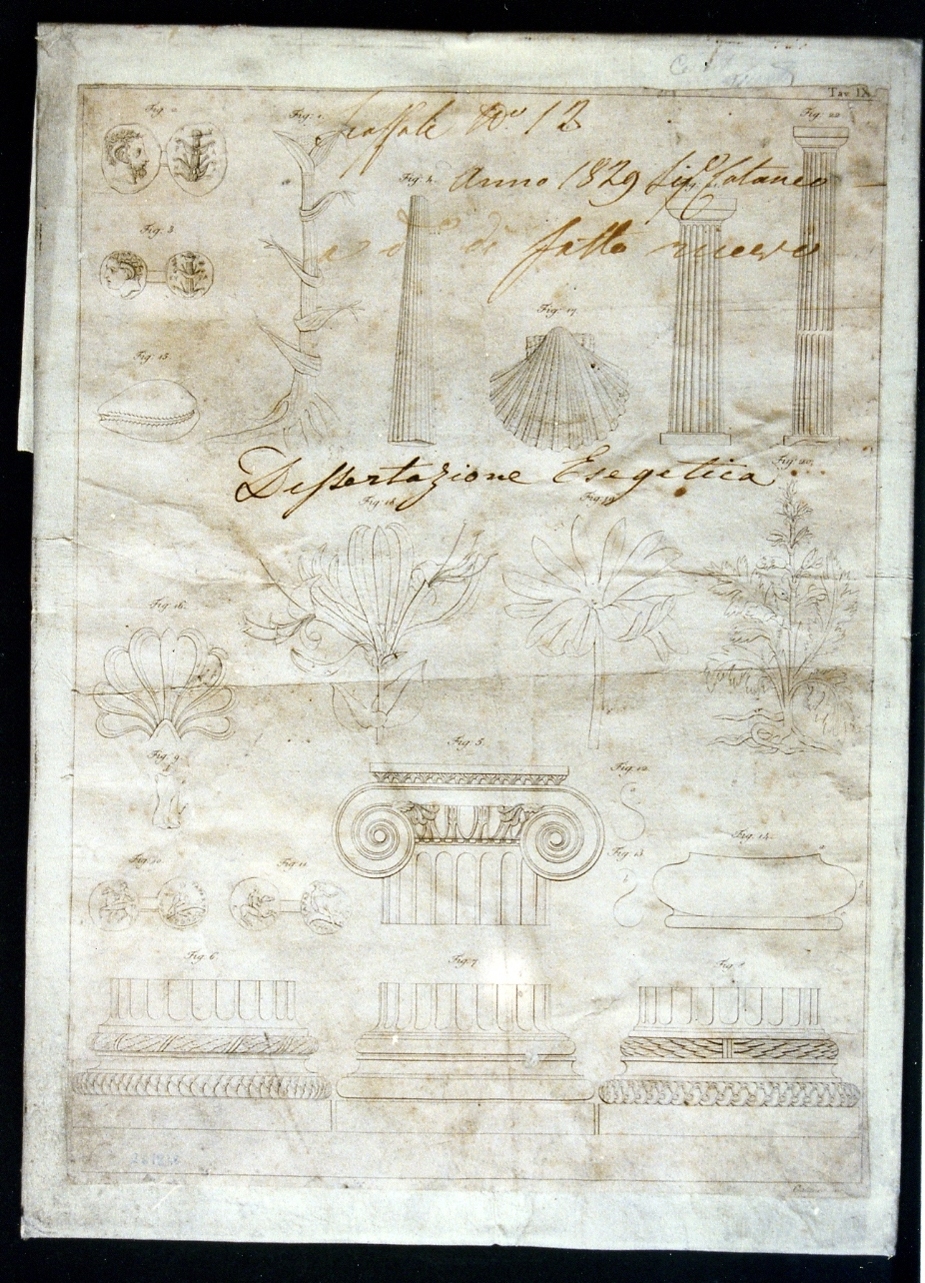 Tav. IX.
Fig. 1.
Fig. 22
Scaffale No. 12
Anno 1829 Sig. Cataneo
di fatto nuovo
Fig. 3
Fig. 17
Fig. 15
Dissertazione Esegetica
Fig. 18
Fig. 19
Fig. 20
Fig. 16
Fig. 5
Fig. 9
Fig. 12
Fig. 13
Fig. 14
Fig. 10
Fig. 11
Fig. 6
Fig. 7
Fig. 8